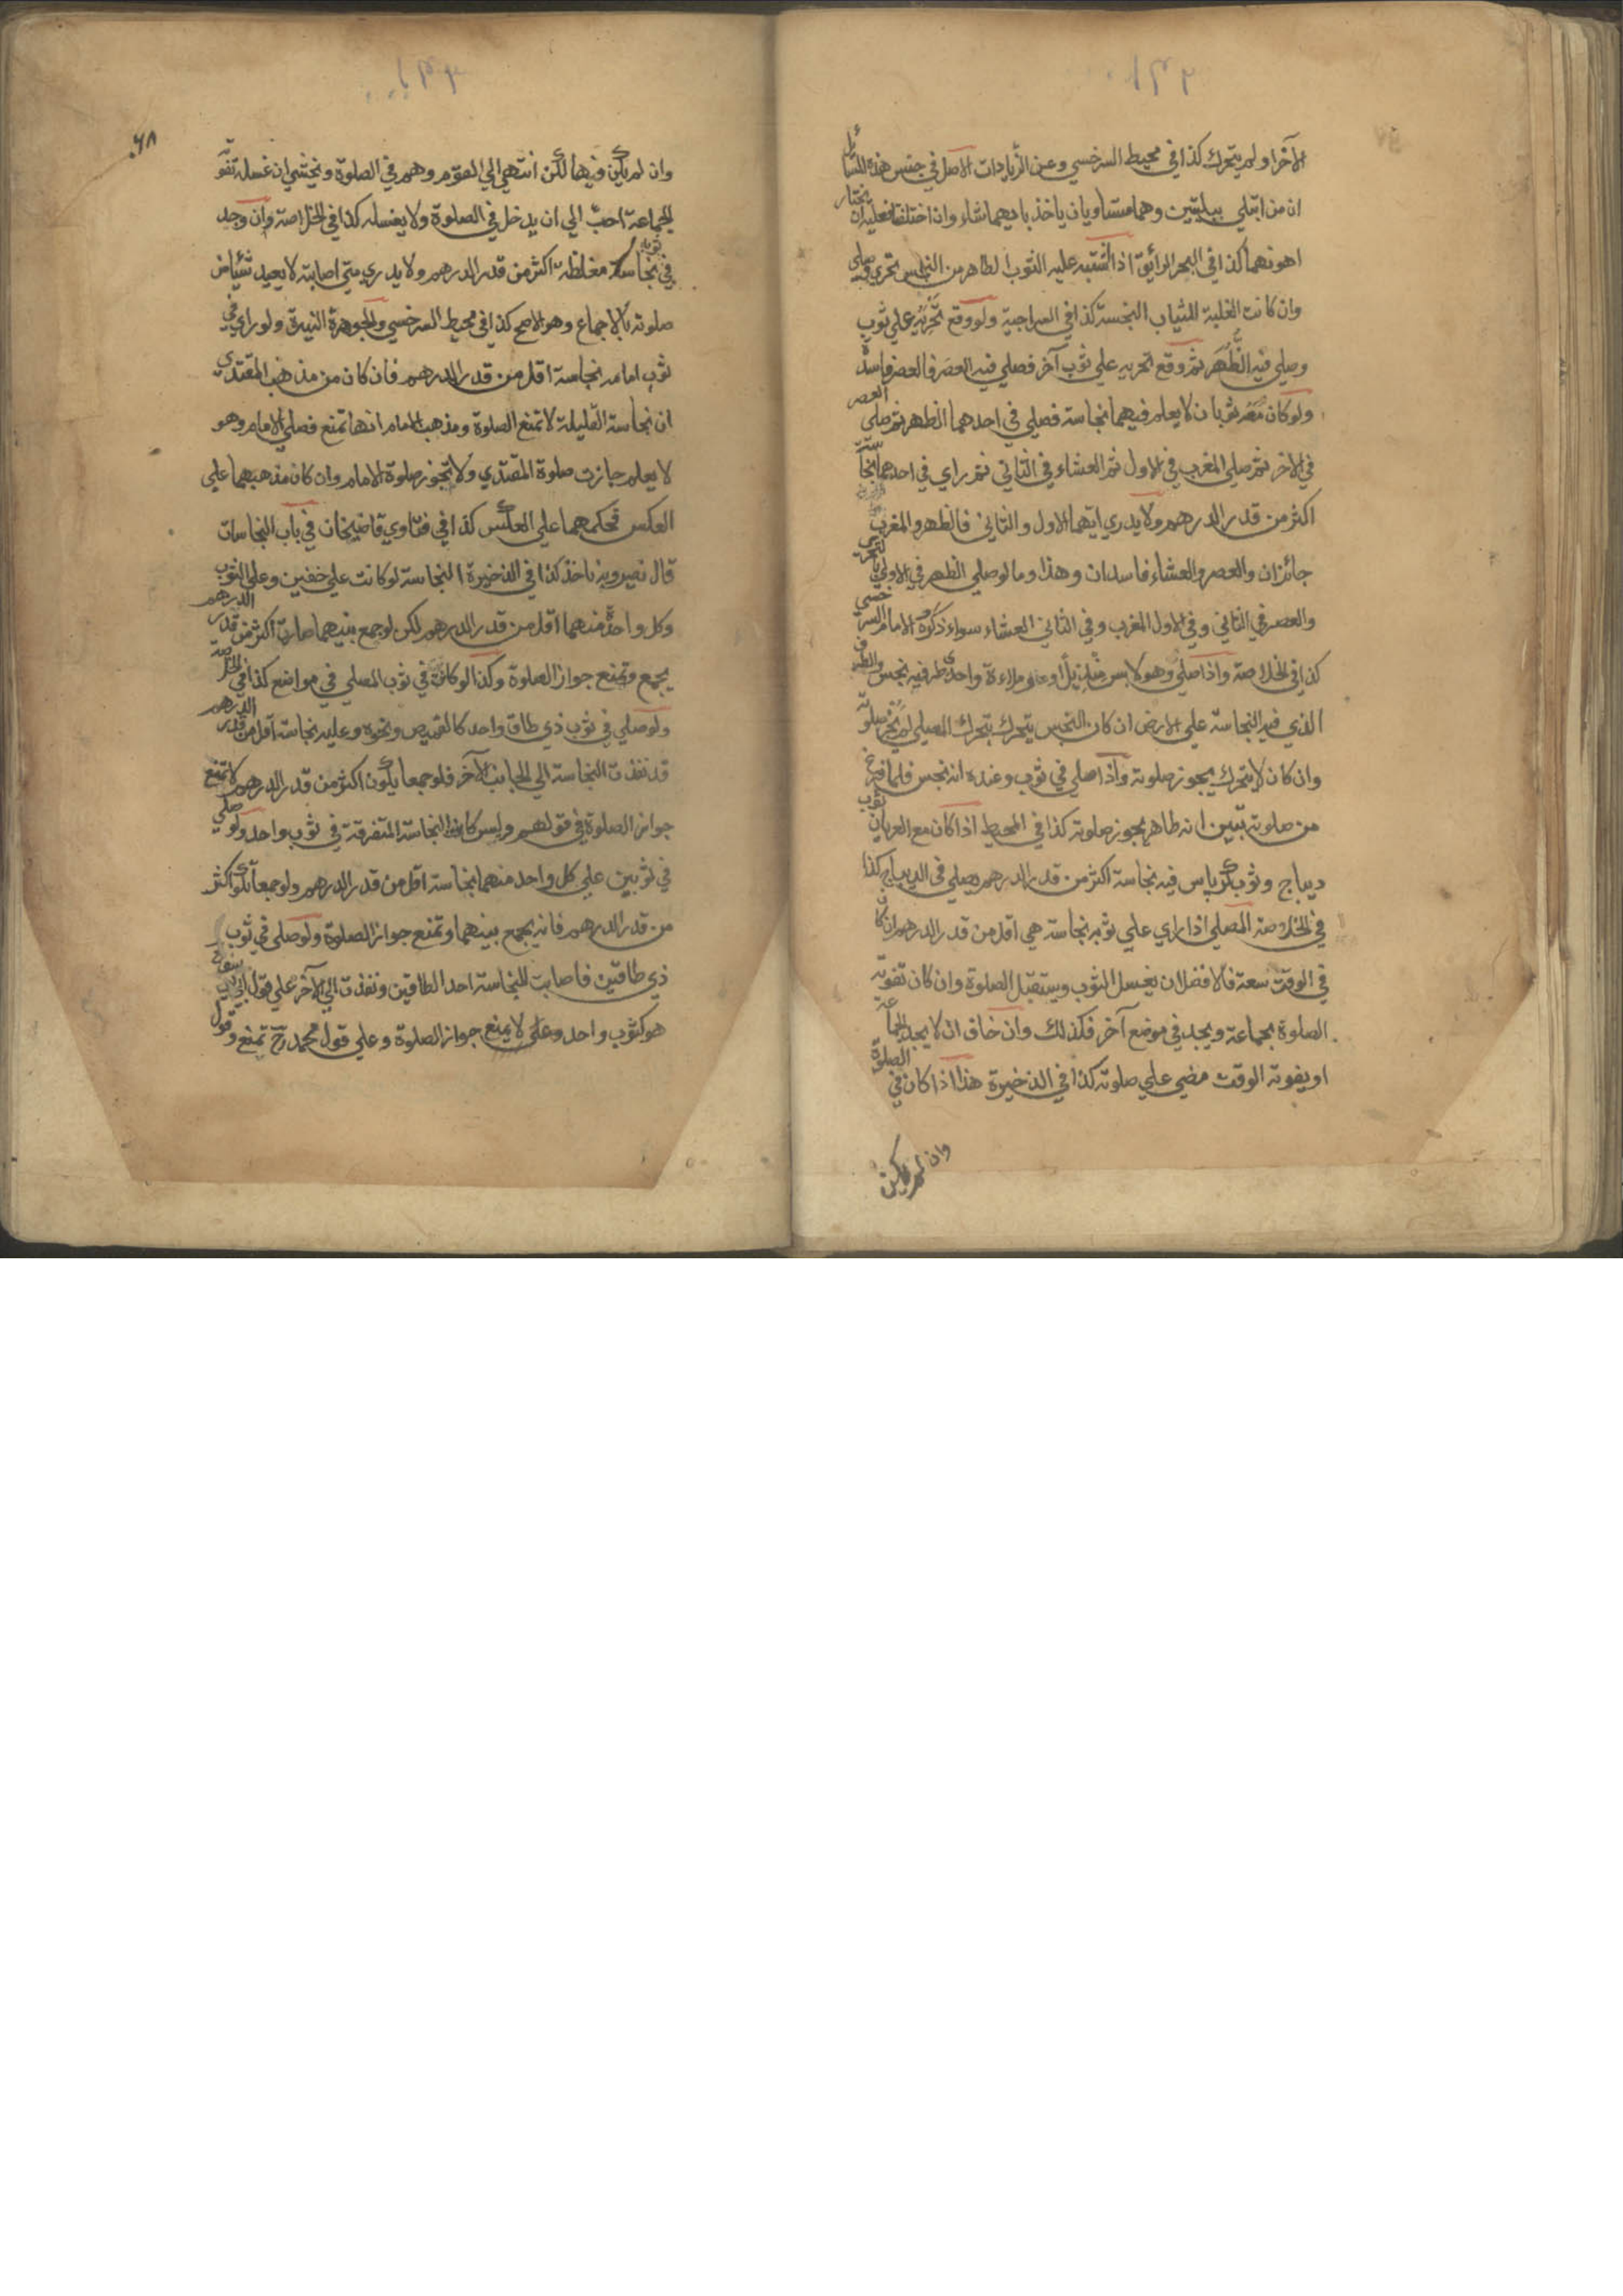 الآخر او لم يتحرك كذا في محيط السرخسي وعن الزيادات الاصل في جنس هذه المسائل
ان من ابتلي ببليتين وهما متساويان ياخذ بايهما شاء وان اختلفتا فعليه ان يختار
اهونهما كذا في البحر الرائق اذا اشتبه عليه الثوب الطاهر من النجس تحرى وصلى
وان كانت الغلبة للثياب النجسة كذا في السراجية ولو وقع تحريه علي ثوب
وصلي فيه الظهر ثم وقع تحريه علي ثوب آخر فصلي فيه العصر فالعصر فاسدة
ولو كان معه ثوبان لا يعلم فيهما نجاسة فصلي في احدهما الظهر ثم صلى العصر
في الاخر ثم صلي المغرب في الاول ثم العشاء في الثاني ثم راي في احدهما نجاسة
اكثر من قدر الدرهم ولا يدري ايهما الاول والثاني فالظهر والمغرب
جائزان والعصر والعشاء فاسدان وهذا وما لو صلي الظهر في الاولي بالتحري
والعصر في الثاني وفي الاول المغرب وفي الثاني العشاء سواء ذكره الامام السرخسي
كذا في الخلاصة واذا صلي وهو لابس منديلا او ملاءة واحد طرفيه نجس والطرف
الذي فيه النجاسة علي الارض ان كان النجس يتحرك بتحرك المصلي لم يجز صلوته
وان كان لا يتحرك يجوز صلوته واذا صلي في ثوب وعنده انه نجس فلما فرغ
من صلوته تبين انه طاهر يجوز صلوته كذا في المحيط اذا كان مع العريان ثوب
ديباج وثوب كرباس فيه نجاسة اكثر من قدر الدرهم يصلي في الديباج كذا
في الخلاصة المصلي اذا راي علي ثوبه نجاسة هي اقل من قدر الدرهم ان كان
في الوقت سعة فالافضل ان يغسل الثوب ويستقبل الصلوة وان كان تفوته
الصلوة بجماعة ويجد في موضع آخر فكذلك وان خاف ان لا يجد الجماعة
او يفوته الوقت مضي علي صلوته كذا في الذخيرة هذا اذا كان في الصلوة
وان لم يكن
٦٨
وان لم يكن فيهما لكن انتهي الي القوم وهم في الصلوة ويخشي ان غسله تفوته
الجماعة احب الي ان يدخل في الصلوة ولا يغسله كذا في الخلاصة وان وجد
في ثوبه نجاسة مغلظة اكثر من قدر الدرهم ولا يدري متى اصابته لا يعيد شيئا من
صلوته بالاجماع وهو الاصح كذا في محيط السرخسي والجوهرة النيرة ولو راي في
ثوب امامه نجاسة اقل من قدر الدرهم فان كان من مذهب المقتدي
ان نجاسة القليلة لا تمنع الصلوة ومذهب الامام انها تمنع فصلي الامام وهو
لا يعلم جازت صلوة المقتدي ولا تجوز صلوة الامام وان كان مذهبهما علي
العكس فحكمهما علي العكس كذا في فتاوي قاضيخان في باب النجاسات
قال نصير وبه ناخذ كذا في الذخيرة النجاسة لو كانت علي خفين وعلي الثوب
وكل واحدة منهما اقل من قدر الدرهم لكن لو جمع بينهما صارت اكثر من قدر الدرهم
يجمع وتمنع جواز الصلوة وكذا لو كانت في ثوب المصلي في مواضع كذا في الخلاصة
ولو صلي في ثوب ذي طاق واحد كالقميص ونحوه وعليه نجاسة اقل من قدر الدرهم
قد نفذت النجاسة الي الجانب الآخر فلو جمعا يكون اكثر من قدر الدرهم لا تمنع
جواز الصلوة في قولهم وليس كالنجاسة المتفرقة في ثوب واحد ولو صلي
في ثوبين علي كل واحد منهما نجاسة اقل من قدر الدرهم ولو جمعا يكون اكثر
من قدر الدرهم فانه يجمع بينهما وتمنع جواز الصلوة ولو صلى في ثوب
ذي طاقين فاصابت النجاسة احد الطاقين ونفذت الي الآخر علي قول ابي يوسف رح
هو كثوب واحد وعلي لا يمنع جواز الصلوة وعلي قول محمد رح تمنع وقول